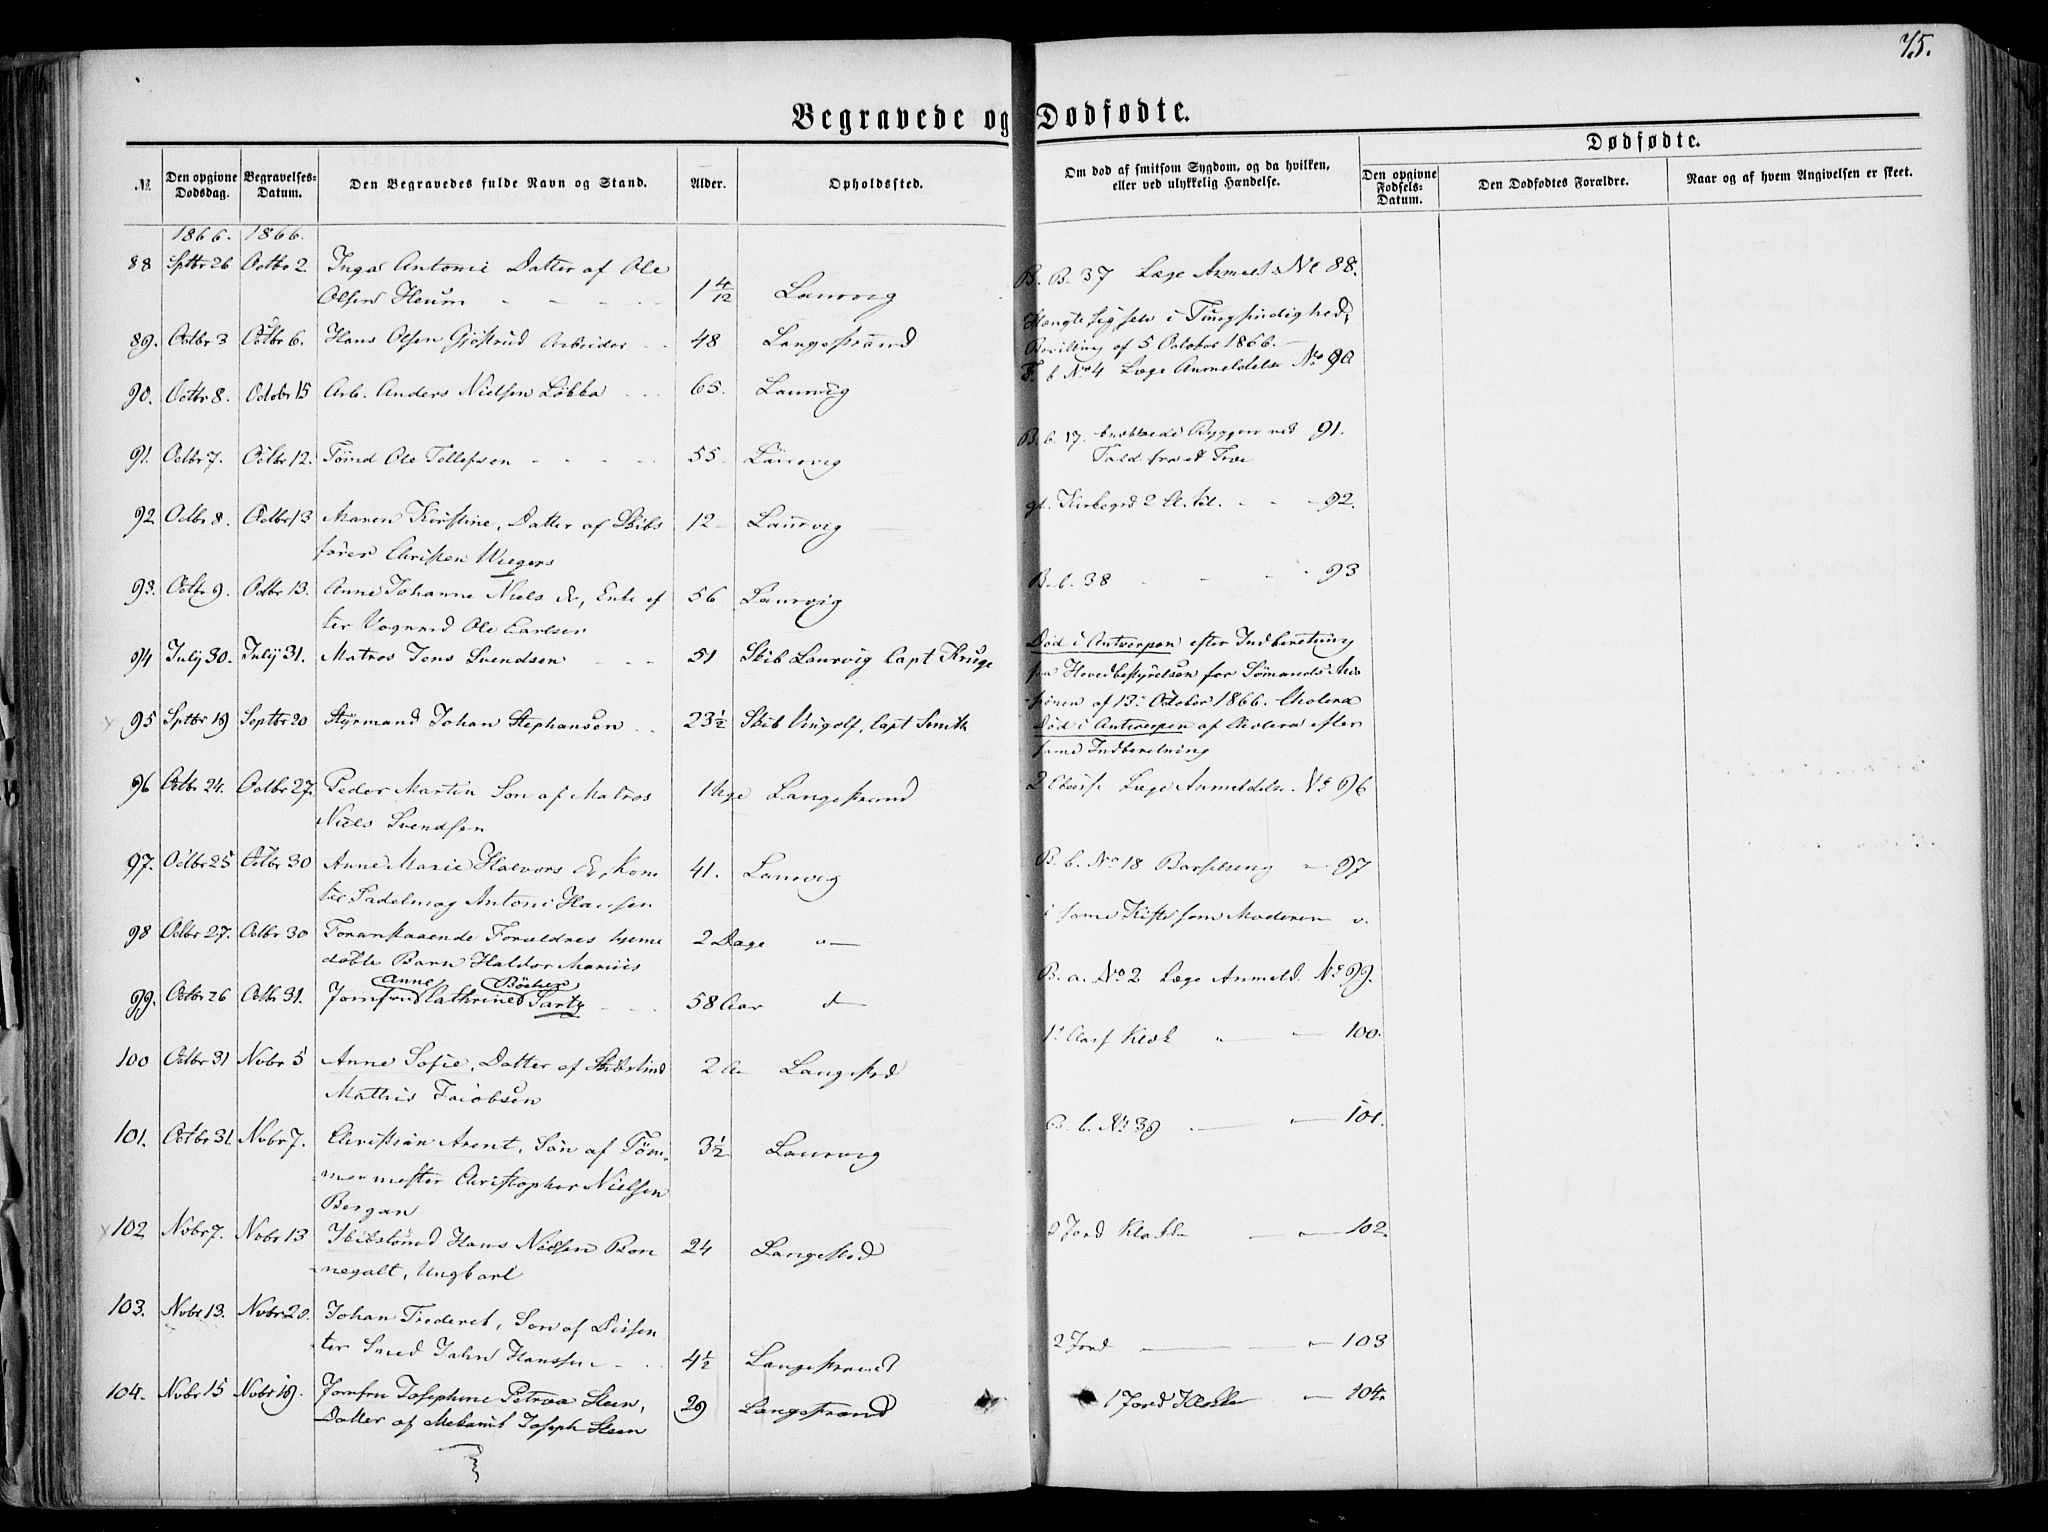 75.
Begravede og Dødfødte.
№ Den opgivne Dødsdag. Begravelses-Datum. Den Begravedes fulde Navn og Stand. Alder. Opholdssted. Om død af smitsom Sygdom, og da hvilken, eller ved ulykkelig Hændelse. Dødfødte. Den opgivne Fødsels-Datum. Den Dødfødtes Forældre. Naar og af hvem Angivelsen er skeet.
1866. 1866.
88 Sptbr 26 Octbr 2 Inga Antonie Datter af Ole B. B. 37 Læge Anmelds № 88.
Olsen Heum 1 4/12 Laurvig
89. Octbr 3 Octbr 6. Hans Olsen Gjøstrud Arbeider 48 Langestrand Hængte sig selv i Tungsindighed,
Bevilling af 5 October 1866.
90. Octbr 8. Octobr 15 Arb. Anders Nielsen Løbba 65. Laurvig F. b № 4 Læge Anmeldelse № 90
91. Octbr 7. Octbr 12. Tømd Ole Tellefsen 55 Laurvig B. b. 17. brækkede Ryggen ved 91.
Fald fra et Træ
92 Octbr 8. Octbr 13 Maren Kirstine, Datter af Skibs 12 Laurvig gl. Kirkegrd 2 92.
fører Christen Wiegers
93. Octbr 9. Octbr 13. Anne Johanne Niels Dr, Enke ef 56 Laurvig B. b. 38 93
ter Vognmd Ole Carlsen
94 July 30. July 31. Matros Jens Svendsen 51 Skib Laurvig Capt Kruge Død i Antverpen efter Indberetning
fra Hovedbestyrelsen for Sømands Mis
sionen af 13 October 1866. Cholera
95 Sptbr 19 Septbr 20 Styrmand Johan Stephansen 23½ Skib Vingolf, Capt Smith Død i Antverpen af Cholera efter
same Indberetning
96 Octbr 24. Octbr 27. Peder Martin Søn af Matros 1 Uge Langestrand 2 Læge Anmeldelse № 96
Niels Svendsen
97. Octbr 25 Octbr 30 Anne Marie Halvors Dr, Kone 41. Laurvig B. b. № 18 Barselseng 97
til Sadelmag Antoni Hansen
98 Octbr 27. Octbr 30 Foranstaaende Forældres hjemme 2 Dage i same Kiste som Moderen
døbte Barn Haldor Marius
99. Octbr 26 Octbr 31. Jomfru Anne Cathrine Bøcher Sartz 58 Aar d B. a. № 2 Læge Anmeld. № 99.
100 Octbr 31 Nvbr 5 Anne Sofie, Datter af Skibstmd 2 Langestrd 1 Class 100.
Mathis Jacobsen
101. Octbr 31. Nvbr 7. Christian Arent, Søn af Tøm- 3½ Laurvig B. b. № 39 101.
mermester Christopher Nielsen
Bergan
102 Nvbr 7. Nvbr 13 Skibstømd Hans Nielsen Ron 24 Langestrd 2 Jord Klasse 102.
negalt, Ungkarl
103. Nvbr 13. Nvbr 20. Johan Frederek, Søn af Dissen
ter Smed John Hanssen 4½ Langestrand 2 Jord 103
104. Nvbr 15 Nvbr 19. Jomfru Josephine Petrea Steen, 29 Langestrand 1 Jord Klasse 104.
Datter af Mekanik Joseph Steen